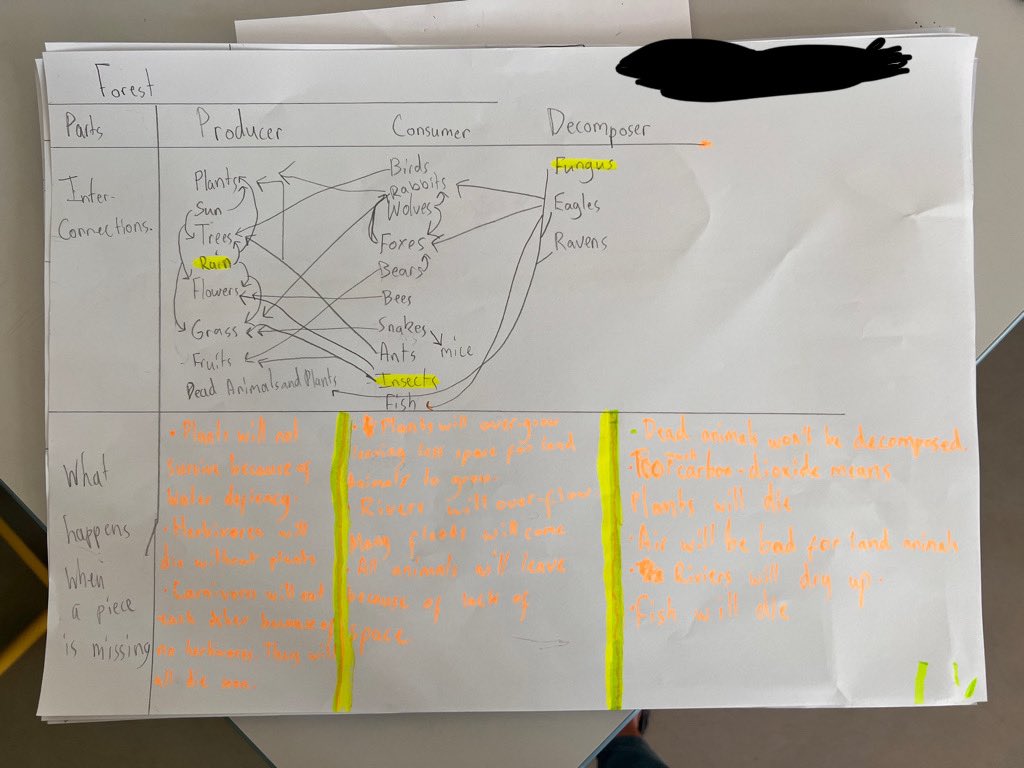 Forest
Parts
Producer
Consumer
Decomposer
Inter-
Connections.
Plants
Sun
Trees
Rain
Flowers
Grass
Fruits
Dead Animals and Plants
Birds
Rabbits
Wolves
Foxes
Bears
Bees
Snakes
mice
Ants
Insects
Fish
Fungus
Eagles
Ravens
What
happens
when
a piece
is missing
• Plants will not
because of
water
• Herbivores will
die without plants
• Carnivores will eat
each other because of
no herbivores. They will
all die
• Plants will over-grow
leaving less space for land
animals to grow.
Rivers will over-flow
Many floods will come
• All animals will leave
because of lack of
space
- Dead animals won't be decomposed.
• Too much carbon-dioxide means
Plants will die
• Air will be bad for land animals
• Riviers will dry up.
• Fish will die